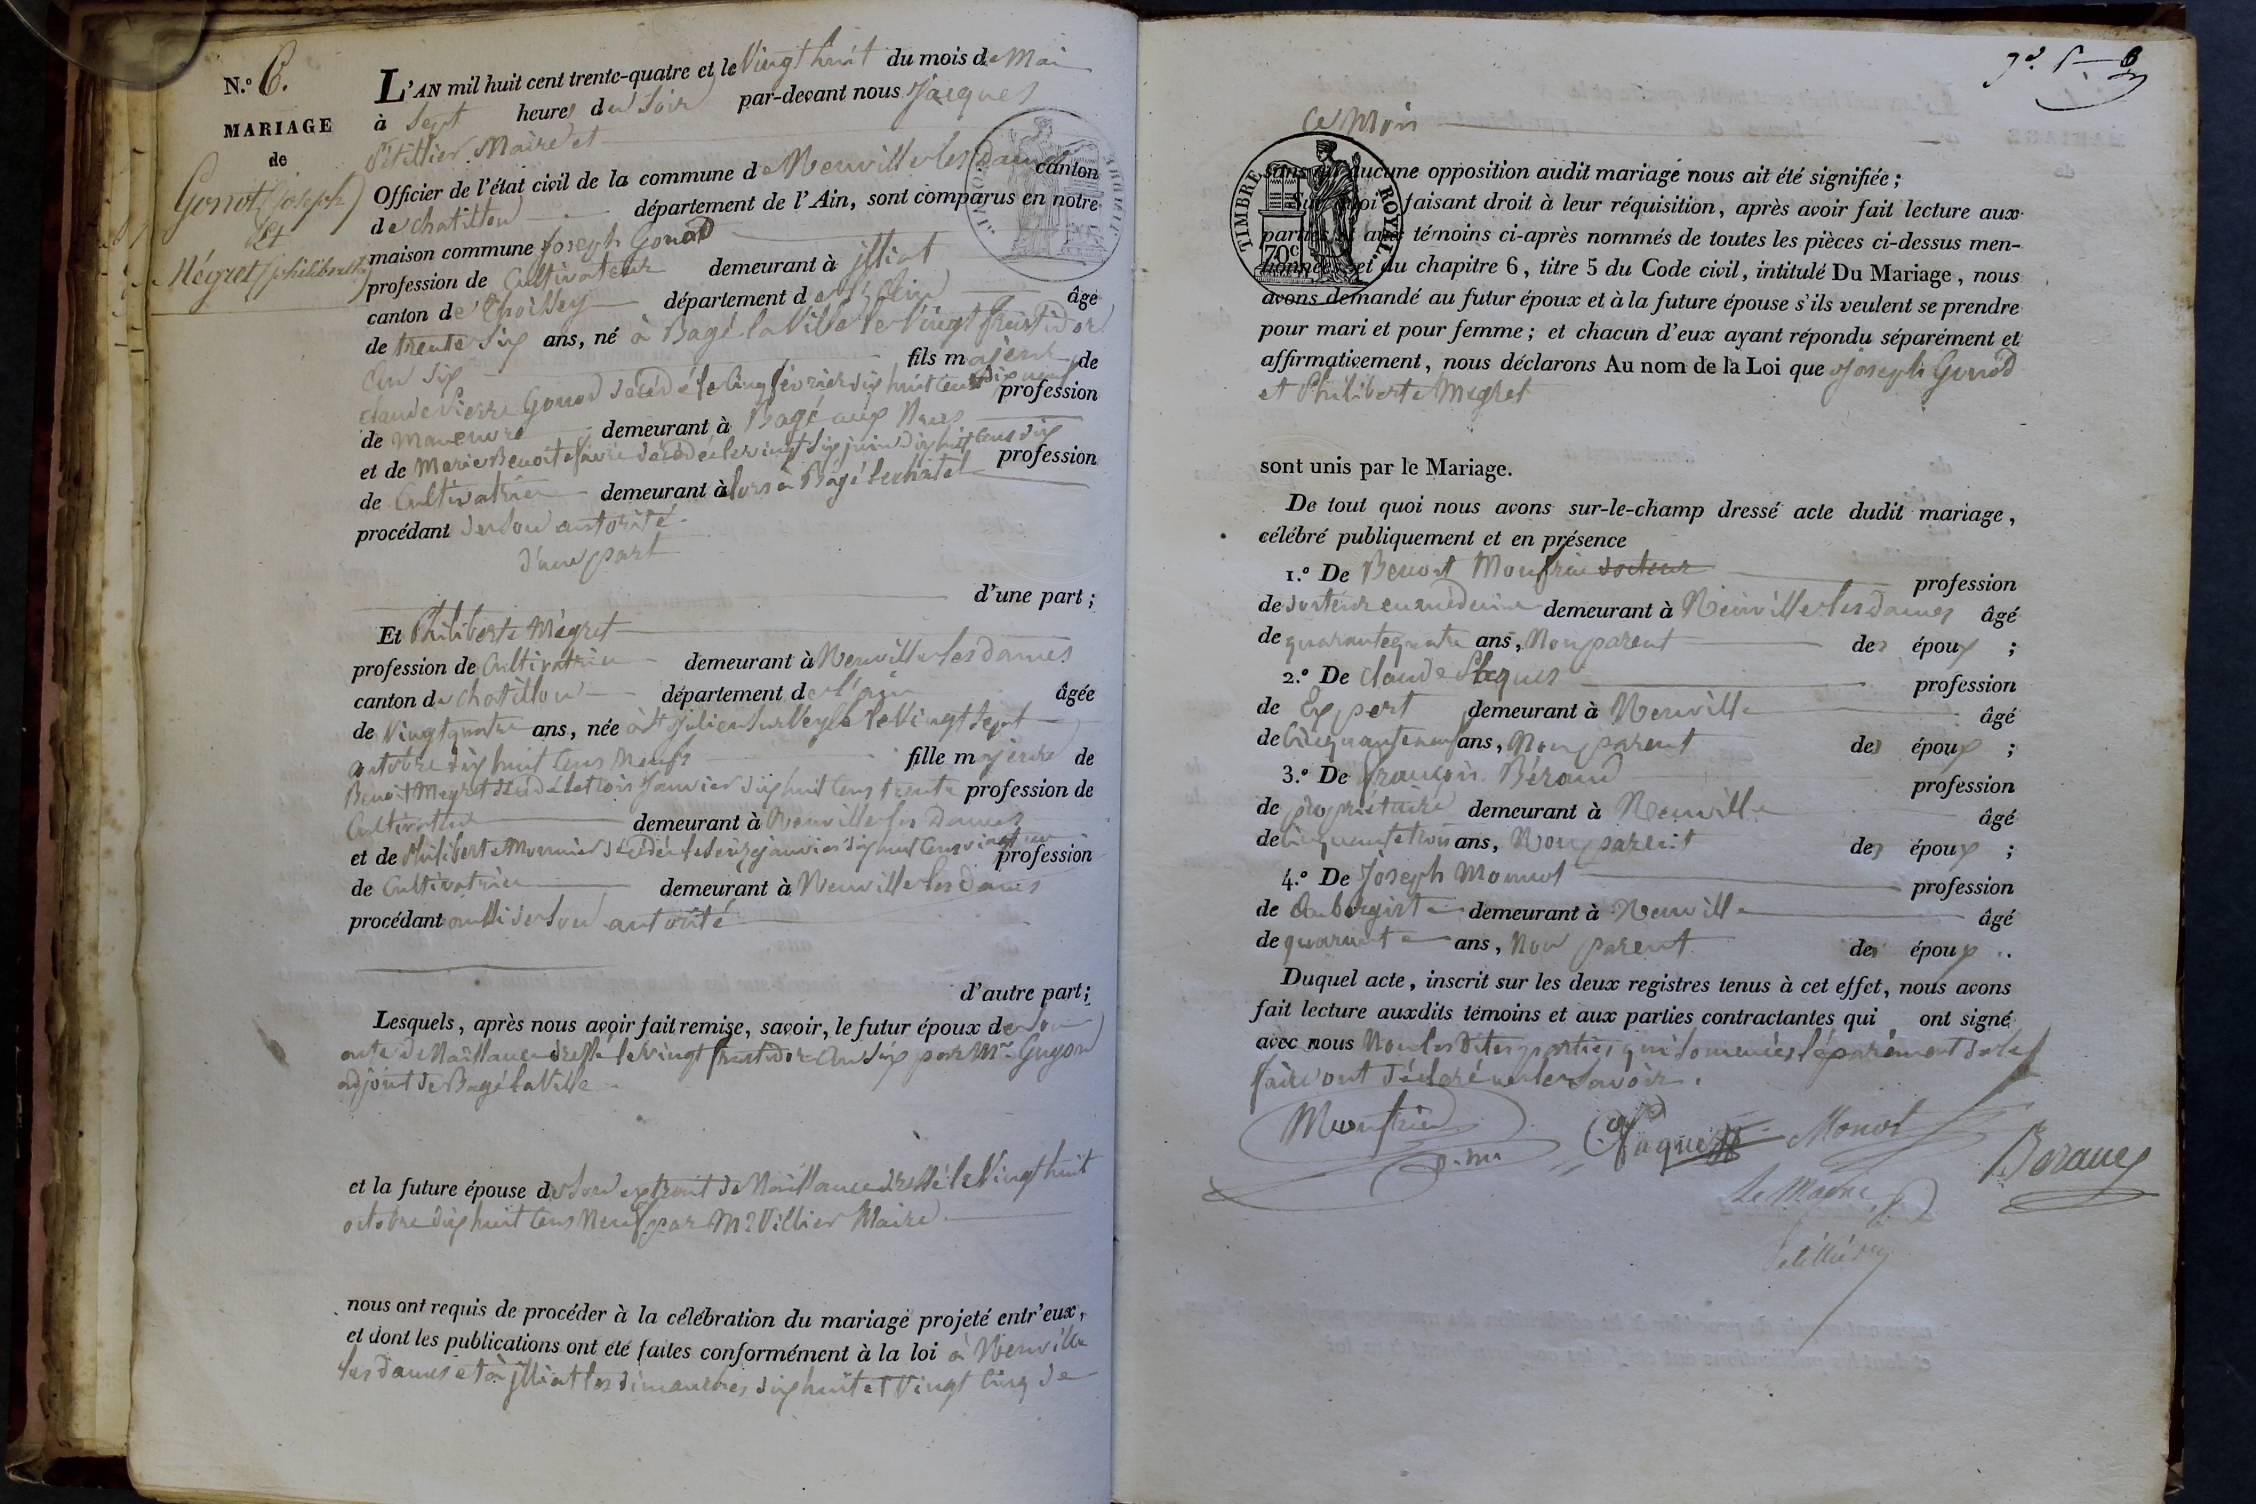 N.º 6.
MARIAGE
de
Gonod (joseph)
et
Mégret (philiberte)
L'AN mil huit cent trente-quatre et le Vingt huit du mois de Mai
à Sept heures du Soir par-devant nous Jacques
Pétillier Maire et
Officier de l'état civil de la commune de Neuville les Dames canton
de chatillon département de l'Ain, sont comparus en notre
maison commune Joseph Gonod
profession de Cultivateur demeurant à jlliat
canton de Thoissey département de l'Ain âgé
de trente Six ans, né à Bagé la Ville le Vingt fructidor
an Six fils majeur de
claude Pierre Gonod décédé le cinq février dix huit cent dix neuf profession
de manœuvre demeurant à Bagé aux Nues
et de Marie Benoite favre décédée le vingt six juin dix huit cens dix profession
de Cultivatrice demeurant à lors à Bagé le chatel
procédant de son autorité
d'une part
d'une part ;
Et Philiberte Mégret
profession de Cultivatrice demeurant à Neuville les Dames
canton de chatillon département de l'ain âgée
de Vingt quatre ans, née à St Julien sur Veyle le Vingt Sept
octobre dix huit cens neuf fille majeure de
Benoit Mégret décédé le trois Janvier dix huit cens trente profession de
Cultivateur demeurant à Neuville les Dames
et de Philiberte Monnier décédée le seize janvier dix huit cens vingt un profession
de Cultivatrice demeurant à Neuville les Dames
procédant aussi de son autorité
d'autre part ;
Lesquels, après nous avoir fait remise, savoir, le futur époux de son
acte de Naissance dressé le vingt fructidor an Six par Mr. Guyon
adjoint de Bagé la Ville
et la future épouse de son extrait de Naissance dressé le Vingt huit
octobre dix huit cens Neuf par Mr Villier Maire
nous ont requis de procéder à la célébration du mariage projeté entr'eux,
et dont les publications ont été faites conformément à la loi à Neuville
les Dames et à jlliat les dimanches dix huit et Vingt cinq de
ce Mois
TIMBRE ROYAL
70c
sans qu'aucune opposition audit mariage nous ait été signifiée ;
Sur quoi faisant droit à leur réquisition, après avoir fait lecture aux
parties et aux témoins ci-après nommés de toutes les pièces ci-dessus men-
tionnées, et du chapitre 6, titre 5 du Code civil, intitulé Du Mariage, nous
avons demandé au futur époux et à la future épouse s'ils veulent se prendre
pour mari et pour femme ; et chacun d'eux ayant répondu séparément et
affirmativement, nous déclarons Au nom de la Loi que Joseph Gonod
et Philiberte Mégret
sont unis par le Mariage.
De tout quoi nous avons sur-le-champ dressé acte dudit mariage,
célébré publiquement et en présence
1.º De Benoit Monfrin docteur profession
de docteur en médecine demeurant à Neuville les Dames âgé
de quarante quatre ans, Non parent des époux ;
2.º De claude Jaques profession
de Expert demeurant à Neuville âgé
de cinquante neuf ans, Non parent des époux ;
3.º De françois Béraud profession
de propriétaire demeurant à Neuville âgé
de cinquante trois ans, Non parent des époux ;
4.º De Joseph Monnot profession
de Aubergiste demeurant à Neuville âgé
de quarante ans, Non parent des époux ..
Duquel acte, inscrit sur les deux registres tenus à cet effet, nous avons
fait lecture auxdits témoins et aux parties contractantes qui ont signé
avec nous Non les dites parties qui sommées séparément de le
faire ont déclaré ne le savoir.
Monfrin
d.m.
Jaques Monot
Beraud
Le Maire
Petillier